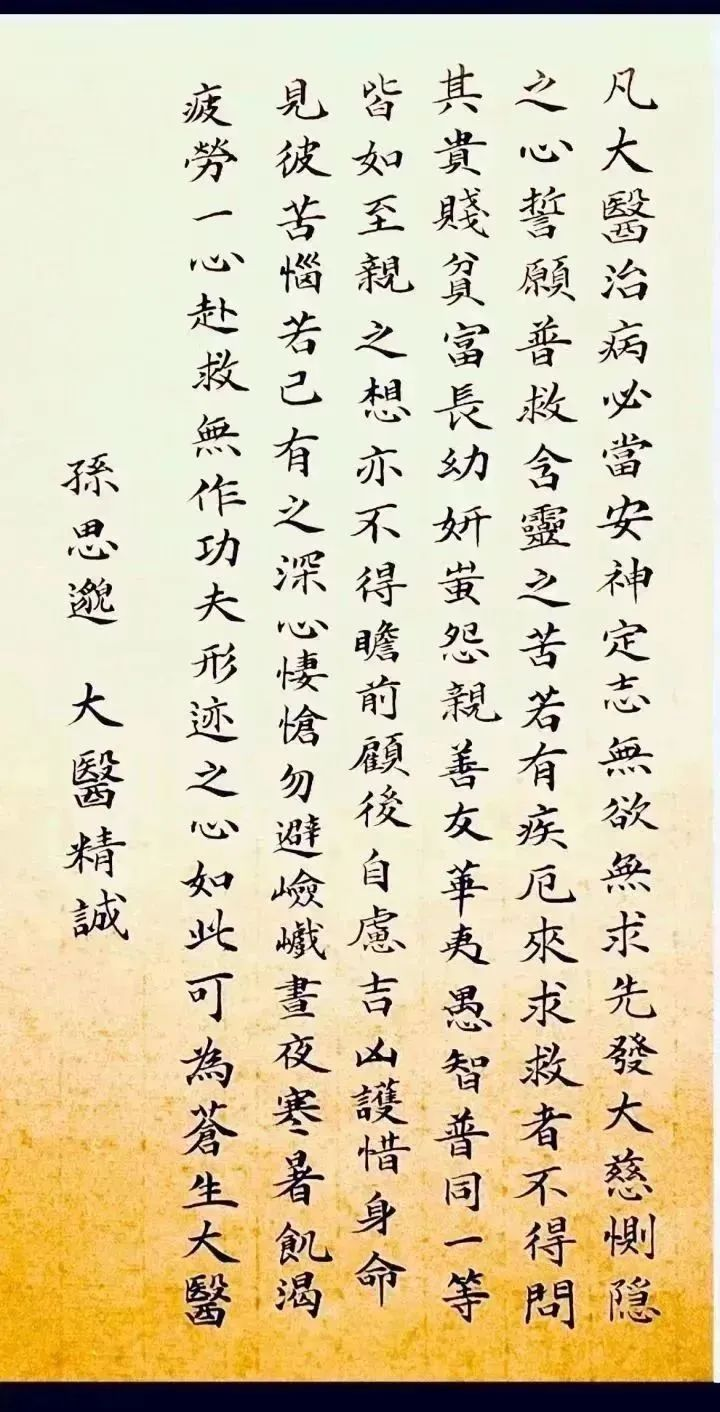 凡大醫治病必當安神定志無欲無求先發大慈惻隐
之心誓願普救含靈之苦若有疾厄來求救者不得問
其貴賤貧富長幼妍蚩怨親善友華夷愚智普同一等
皆如至親之想亦不得瞻前顧後自慮吉凶護惜身命
見彼苦惱若己有之深心悽愴勿避嶮巇晝夜寒暑飢渴
疲勞一心赴救無作功夫形迹之心如此可為蒼生大醫
孫思邈 大醫精誠